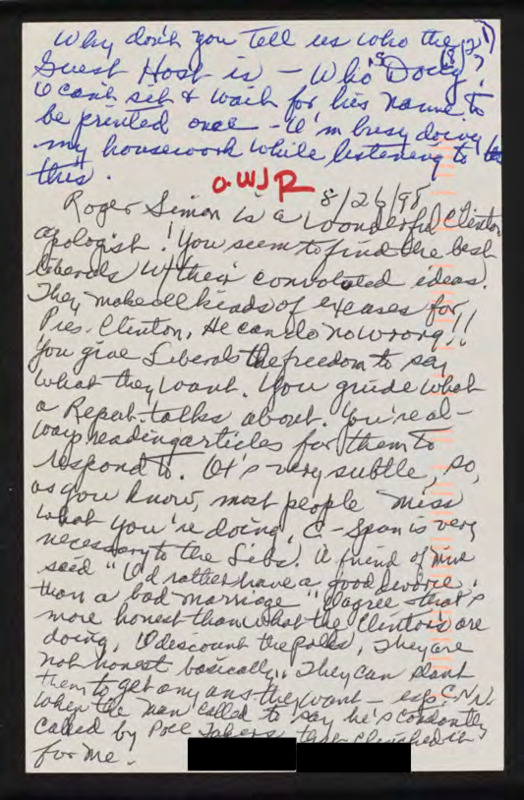 Why don't you tell us who the
Guest Host is – Who's Doug?
I can't sit & wait for his name to
be printed once – I'm busy doing
my housework while listening to
this.
WJR
8/26/98
Roger Simon is a wonderful Clinton
apologist! You seem to find the best
liberals w/ their convoluted ideas.
They make all kinds of excuses for
Pres. Clinton, He can do no wrong!!
You give Liberals the freedom to say
what they want. You guide what
a Repub. talks about. You're al-
ways reading articles for them to
respond to. It's very subtle, so,
as you know, most people miss
what you're doing. C-Span is very
necessary to the Libs. A friend of mine
said "I'd rather have a good divorce
than a bad marriage" I agree – that's
more honest than what the Clintons are
doing. I discount the polls. They are
not honest basically. They can slant
them to get any ans they want – esp. CNN.
When the man called to say he's constantly
called by Poll Takers, that clinched it
for me.